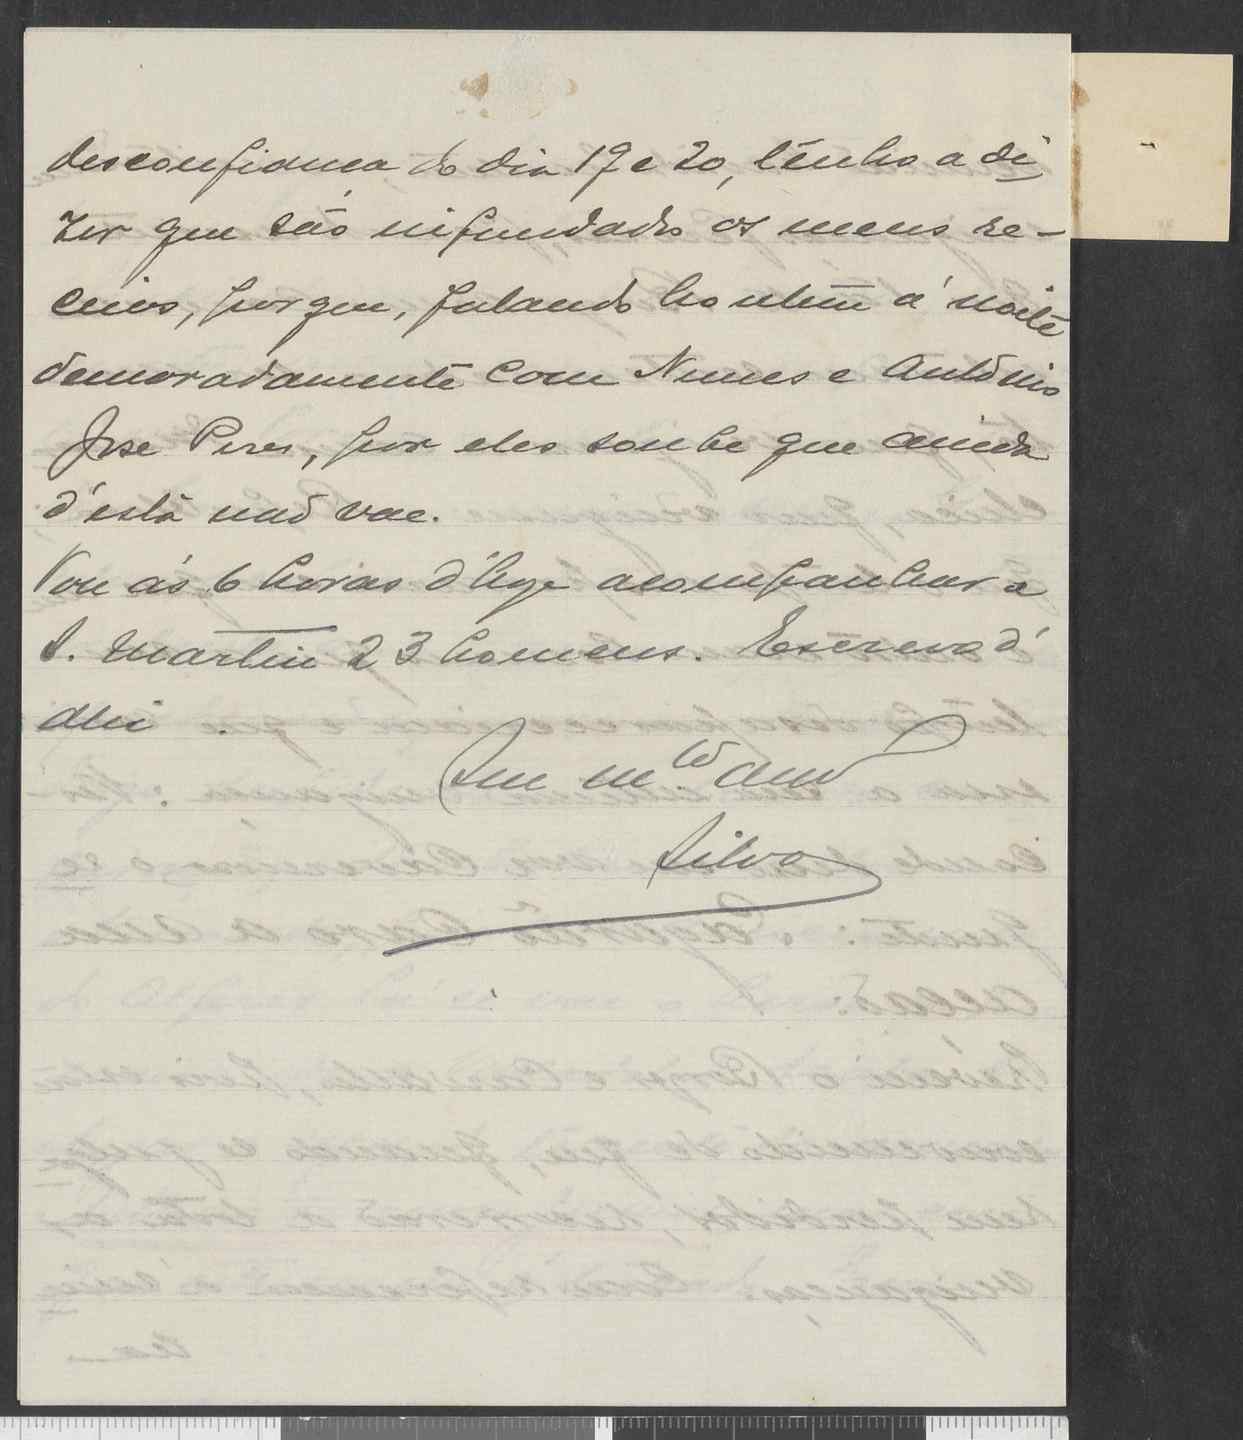 desconfiança do dia 19 e 20, tenho a di
zer que são infundados os meus re-
ceios, porque, falando hontem á noite
demoradamente com Nunes e António
Jose Pires, por eles soube que ainda
d'esta não vae.
Vou ás 6 horas d'hoje acompanhar a
S. Martin 23 homens. Escrevo d'
ali.
Seu mto amo
Silva